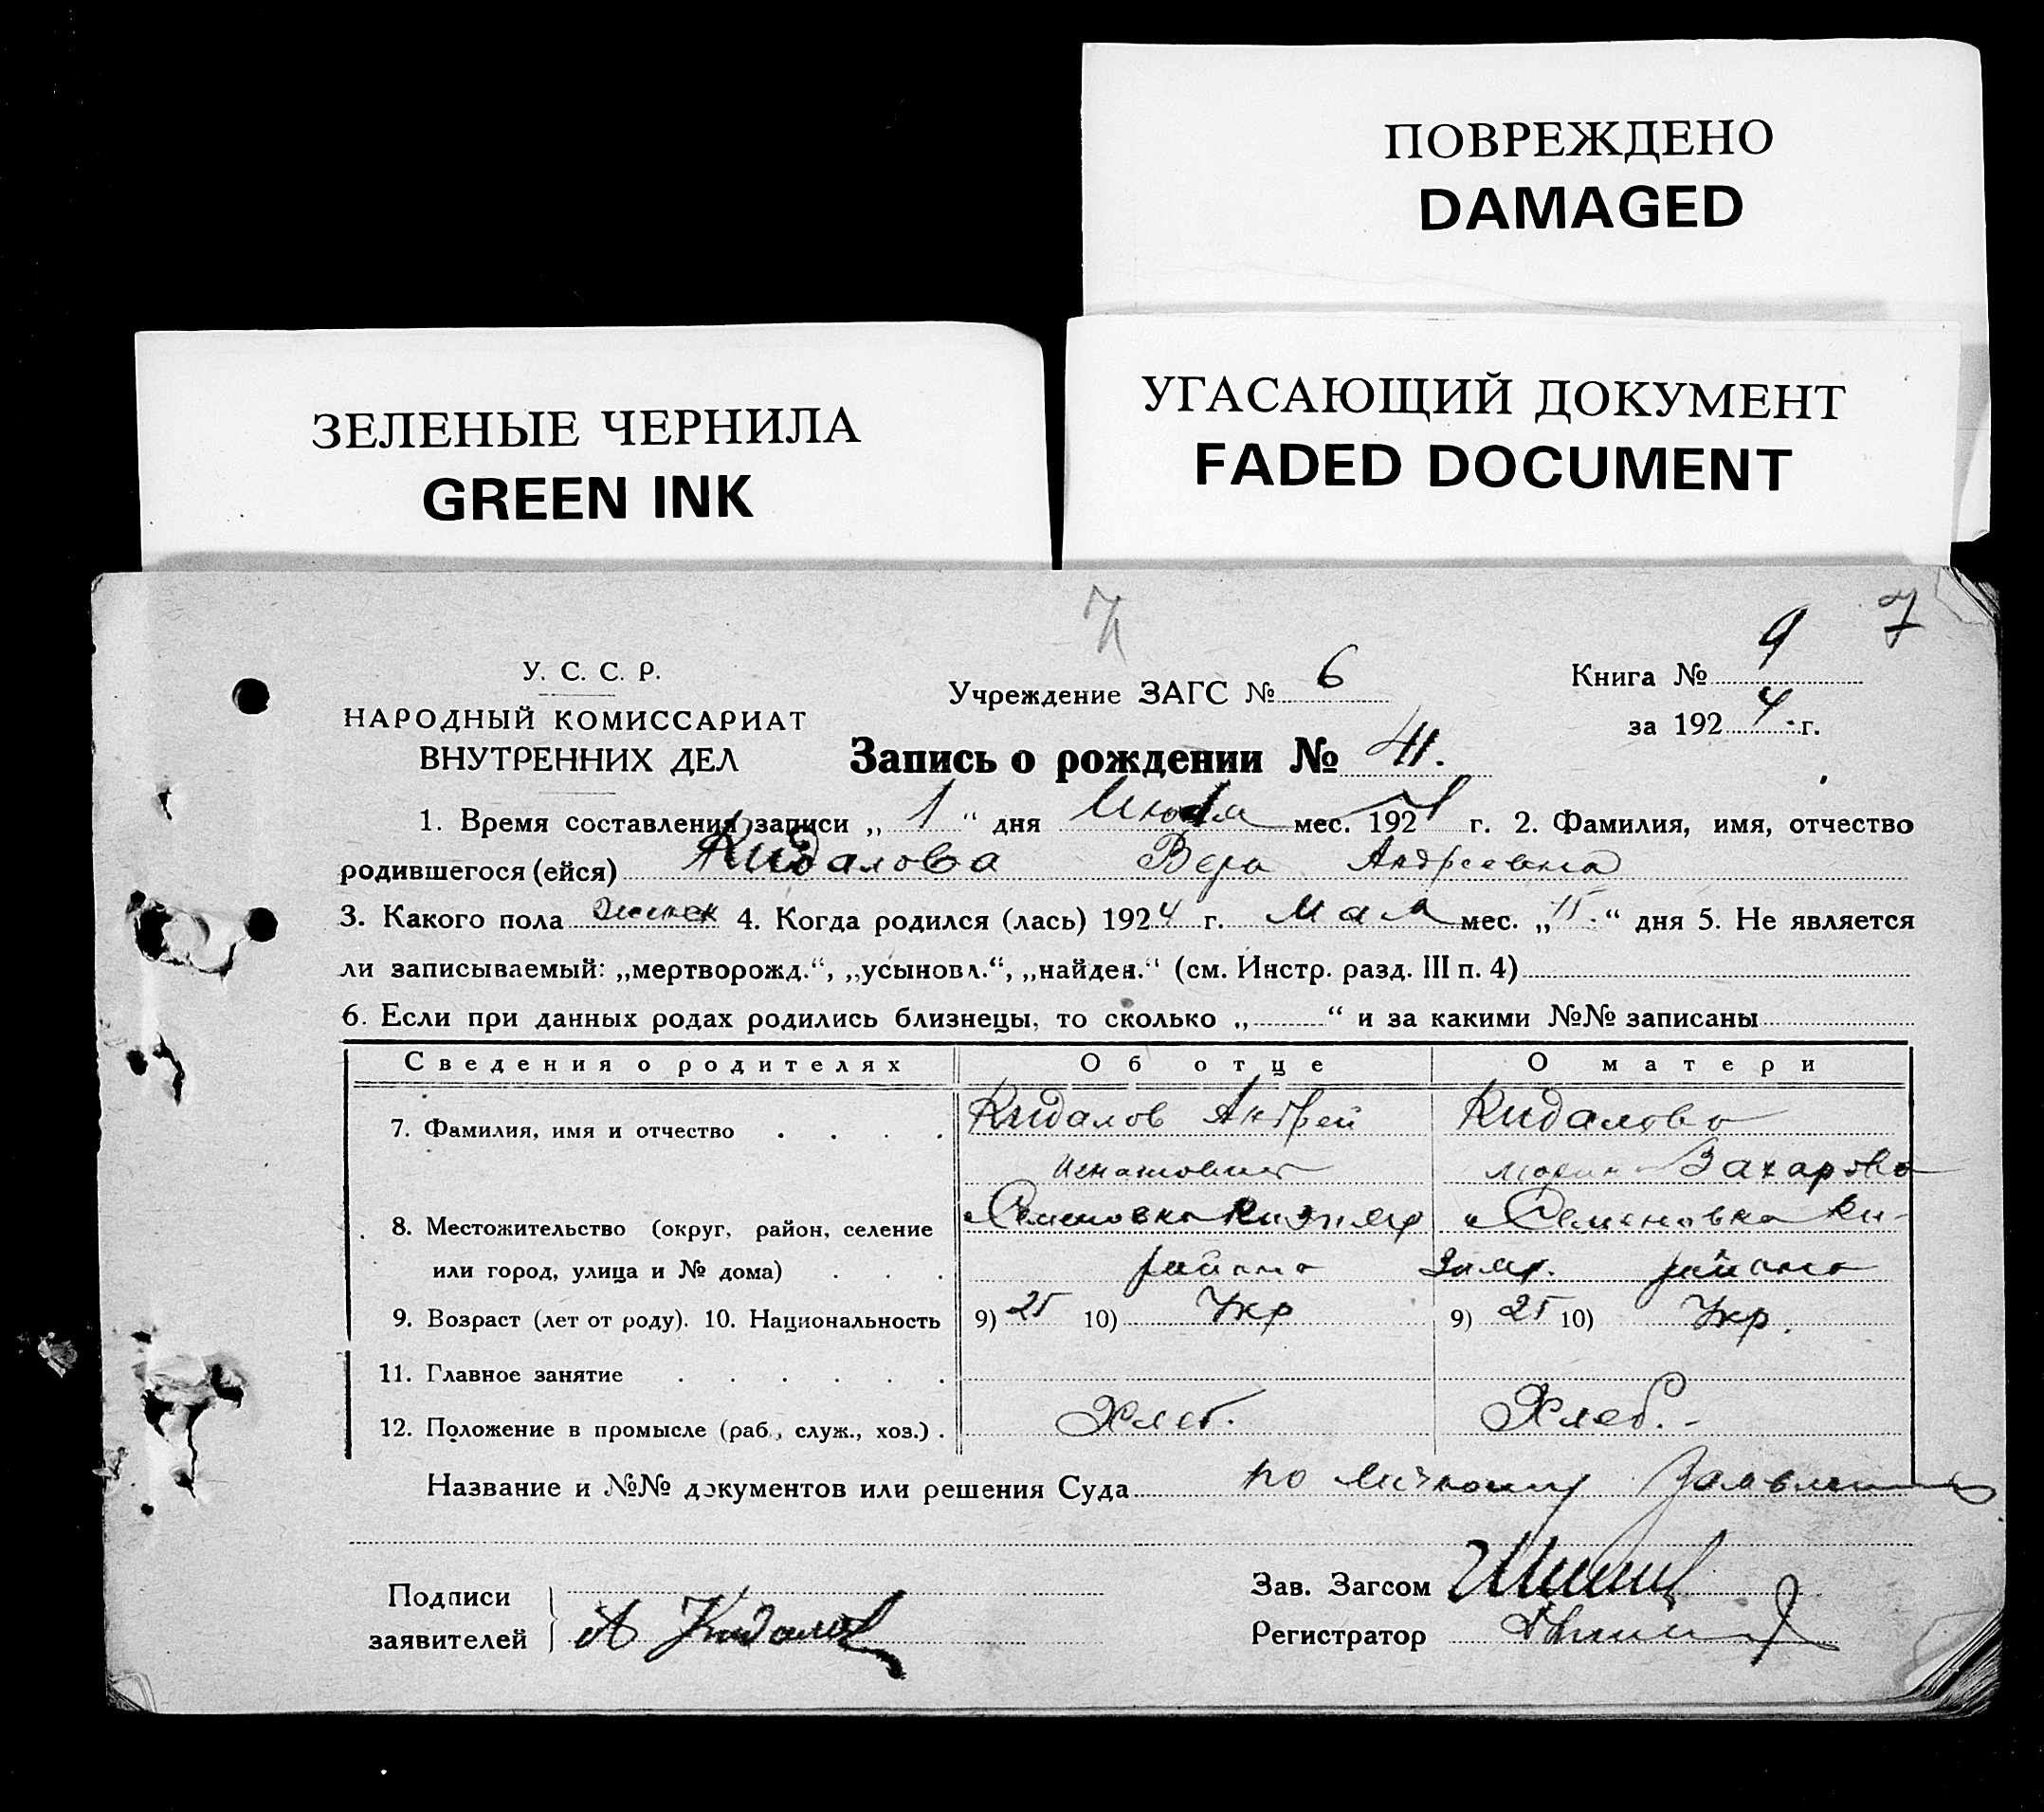 ПОВРЕЖДЕНО
DAMAGED
ЗЕЛЕНЫЕ ЧЕРНИЛА
GREEN INK
УГАСАЮЩИЙ ДОКУМЕНТ
FADED DOCUMENT
7
7
У. С. С. Р.
НАРОДНЫЙ КОМИССАРИАТ
ВНУТРЕННИХ ДЕЛ
Учреждение ЗАГС № 6
Книга № 9
за 1924 г.
Запись о рождении № 41.
1. Время составления записи „ 1 “ дня мес. 1924 г. 2. Фамилия, имя, отчество
родившегося (ейся) Кидалова Вера Андреевна
3. Какого пола женск 4. Когда родился (лась) 1924 г. Мая мес. „15.“ дня 5. Не является
ли записываемый: „мертворожд.“, „усыновл.“, „найден.“ (см. Инстр. разд. III п. 4)
6. Если при данных родах родились близнецы, то сколько „ “ и за какими №№ записаны
Сведения о родителях Об отце О матери
7. Фамилия, имя и отчество Кидалов Андрей Кидалова
Игнатович Захарова
8. Местожительство (округ, район, селение Семеновка Кизияр Семеновка Ки-
или город, улица и № дома) района зияр. района
9. Возраст (лет от роду). 10. Национальность 9) 25 10) Укр 9) 25 10) Укр.
11. Главное занятие
12. Положение в промысле (раб., служ., хоз.) Хлеб. Хлеб.-
Название и №№ документов или решения Суда по личному Заявлению
Подписи
заявителей А Кидалов
Зав. Загсом
Регистратор